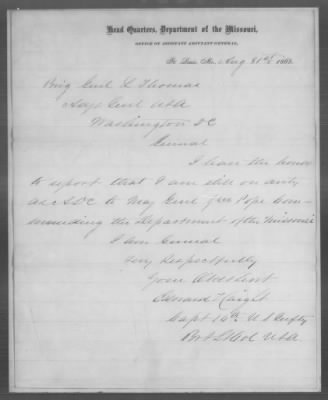 Head Quarters, Department of the Missouri,
OFFICE OF ASSISTANT ADJUTANT GENERAL,
St. Louis, Mo., Aug 31st 186
Brig Genl L Thomas
Adjt Genl USA
Washington DC
General
I have the honor
to report that I am still on duty
as ADC to Maj Genl Jno Pope com-
manding the Department of the Missouri
I am General
Very Respectfully
Your Obt Servt
Edward Haight
Capt 16th U.S. Infty
Bvt Lt Col USA